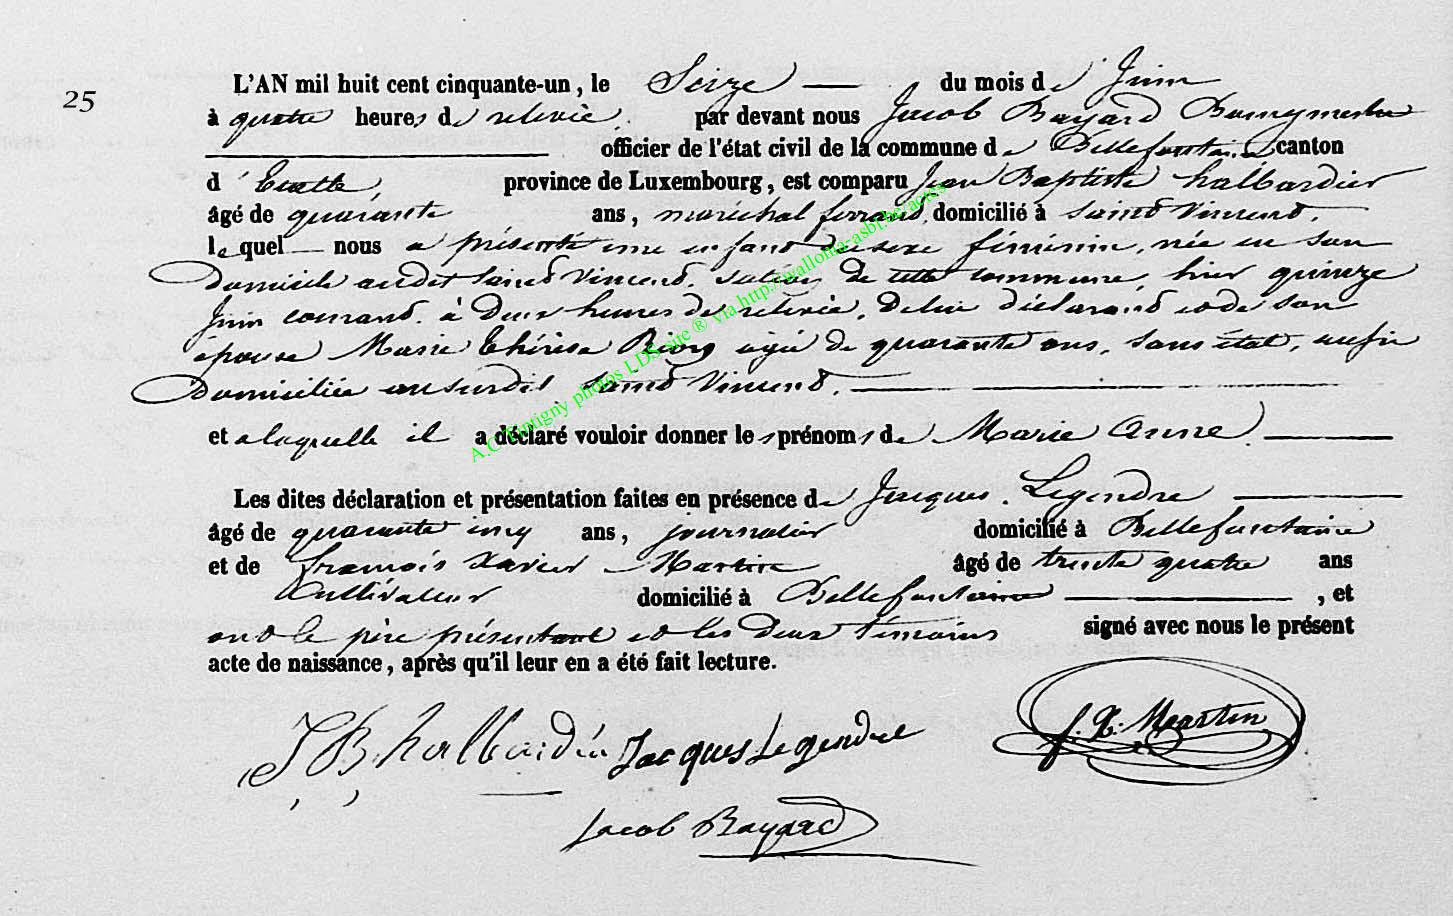 25
L'AN mil huit cent cinquante-un, le Seize du mois de Juin
à quatre heures de relevée, par devant nous Jacob Bayard Bourgmestre
officier de l'état civil de la commune de Bellefontaine canton
d'Etalle, province de Luxembourg, est comparu Jean Baptiste halbardier
âgé de quarante ans, maréchal ferrand, domicilié à Saint Vincent,
lequel nous a présenté une enfant du sexe féminin, née en son
Domicile audit Saint Vincent, section de cette commune, hier quinze
Juin courant, à Deux heures de relevée, De lui déclarant et de son
épouse Marie Thérèse agée de quarante ans, sans état, aussi
Domiciliée au susdit Saint Vincent.
et a laquelle il a déclaré vouloir donner les prénoms de Marie Anne.
Les dites déclaration et présentation faites en présence de Jacques Legendre
âgé de quarante cinq ans, journalier domicilié à Bellefontaine
et de françois Xavier Martin âgé de trente quatre ans
Cultivateur domicilié à Bellefontaine, et
ont le père présentant et les Deux témoins signé avec nous le présent
acte de naissance, après qu'il leur en a été fait lecture.
JB halbardier Jacques Legendre f. X. Martin
Jacob Bayard
A.C Tintigny photos LDS site ® via http://wallonia-asbl.be/actes